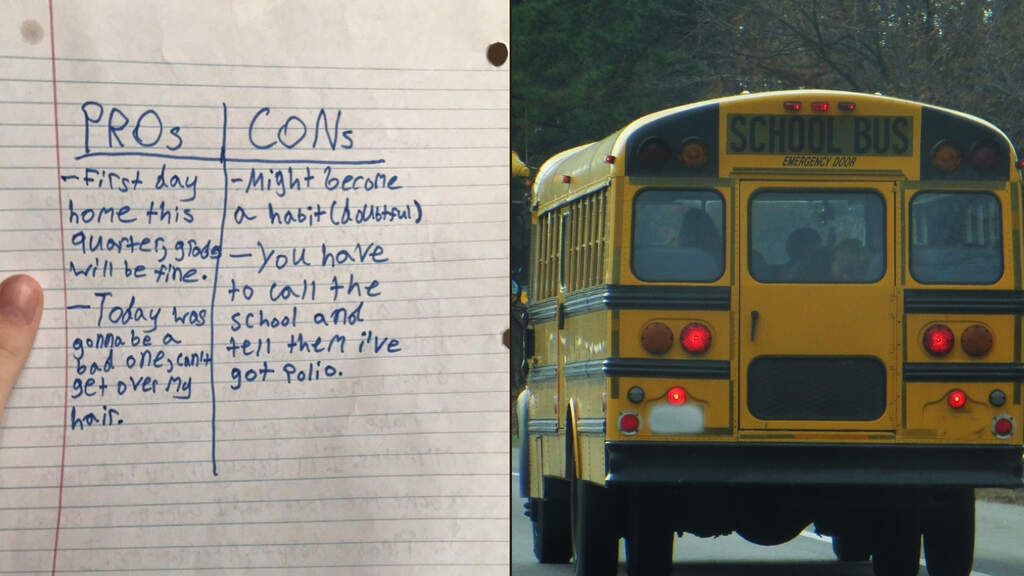 PROs | CONs
- First day
home this
quarter, grades
will be fine.
- Today was
gonna be a
bad one, can't
get over my
hair.
- Might become
a habit (doubtful)
- You have
to call the
school and
tell them i've
got polio.
SCHOOL BUS
EMERGENCY DOOR